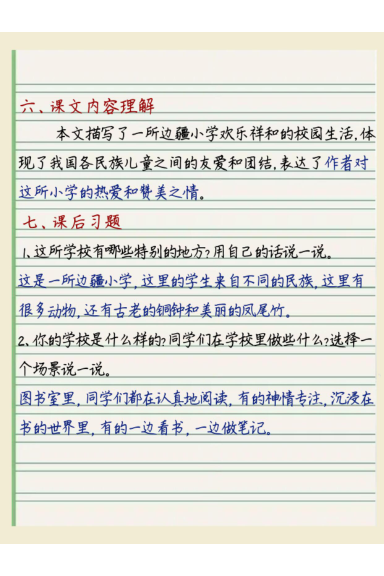 六、课文内容理解
本文描写了一所边疆小学欢乐祥和的校园生活,体
现了我国各民族儿童之间的友爱和团结,表达了作者对
这所小学的热爱和赞美之情。
七、课后习题
1、这所学校有哪些特别的地方?用自己的话说一说。
这是一所边疆小学,这里的学生来自不同的民族,这里有
很多动物,还有古老的铜钟和美丽的凤尾竹。
2、你的学校是什么样的?同学们在学校里做些什么?选择一
个场景说一说。
图书室里,同学们都在认真地阅读,有的神情专注,沉浸在
书的世界里,有的一边看书,一边做笔记。